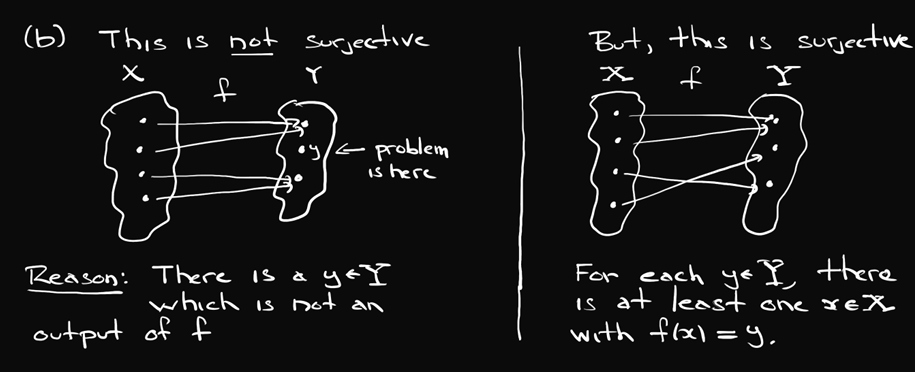 (b) This is not surjective
X f Y
y ← problem
is here
Reason: There is a y∈Y
which is not an
output of f
But, this is surjective
X f Y
For each y∈Y, there
is at least one x∈X
with f(x) = y.